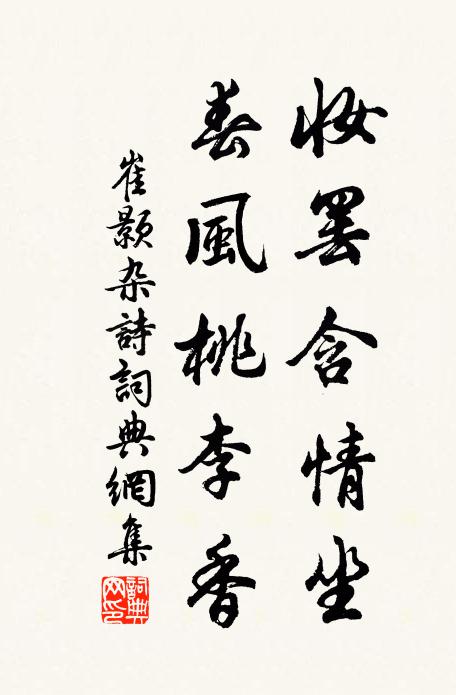 妆罢含情坐
春風桃李香
崔颢杂詩詞典網集
詞典网印